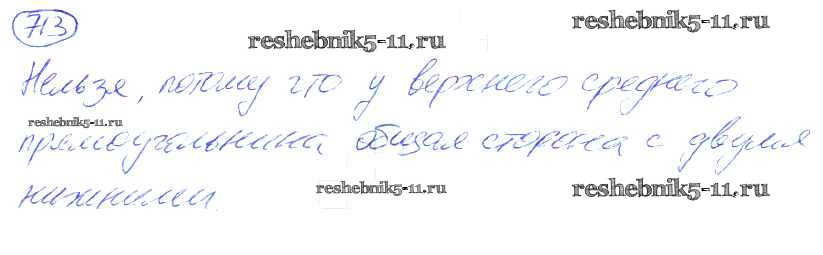 713
reshebnik5-11.ru
reshebnik5-11.ru
Нельзя, потому что у верхнего среднего
reshebnik5-11.ru
прямоугольника общая сторона с двумя
нижними.
reshebnik5-11.ru
reshebnik5-11.ru